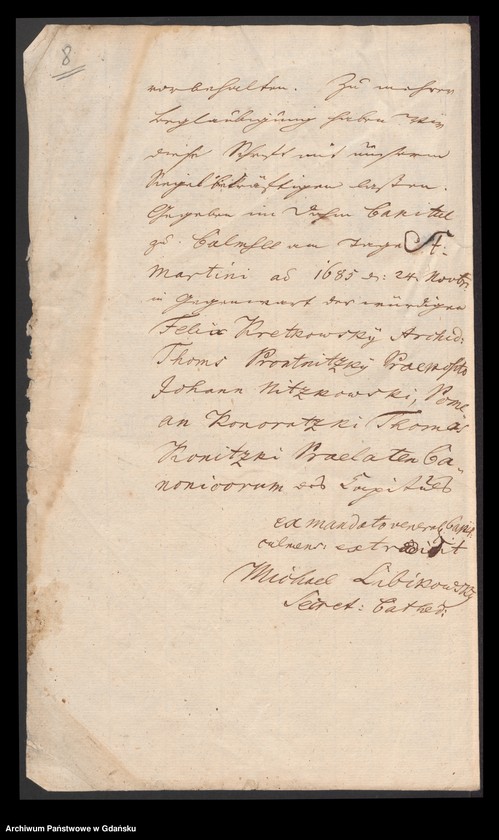 8
vorbehalten. Zu mehrer
beglaubigung haben Wir
diese Schrift mit unserem
Siegel bekräftigen lassen.
Gegeben im Dohm Capitul
zu Culmsee am Tage St:
Martini ao 1685 d: 24 Novbr:
in Gegenwart der würdigen
Felix Kretkowskÿ Archid:
Thoms Prontnitzkÿ Praeposito
Johann Nitzkowski, Pome
an Konoratzki Thomas
Konitzki Praelaten Ca-
nonicorum des Capituls
ex mandato venerab: Capit:
culmens: extradidit
Michael Lubikowskÿ
Secret: Cathed:
Archiwum Państwowe w Gdańsku